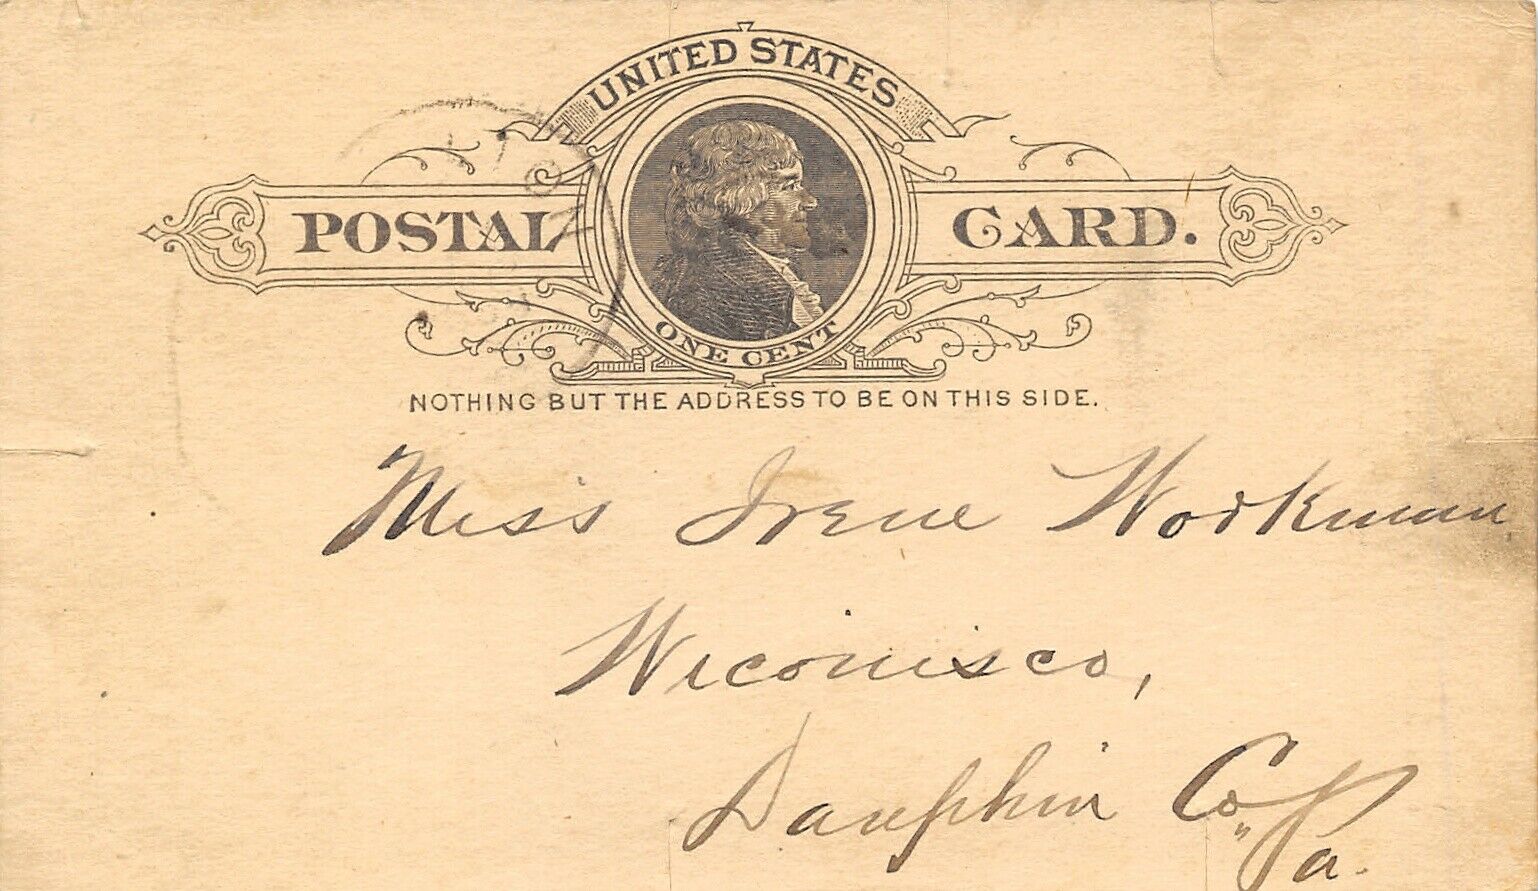 UNITED STATES
POSTAL CARD.
ONE CENT
NOTHING BUT THE ADDRESS TO BE ON THIS SIDE.
Miss Irene Workman
Wiconisco,
Dauphin Co„ Pa.